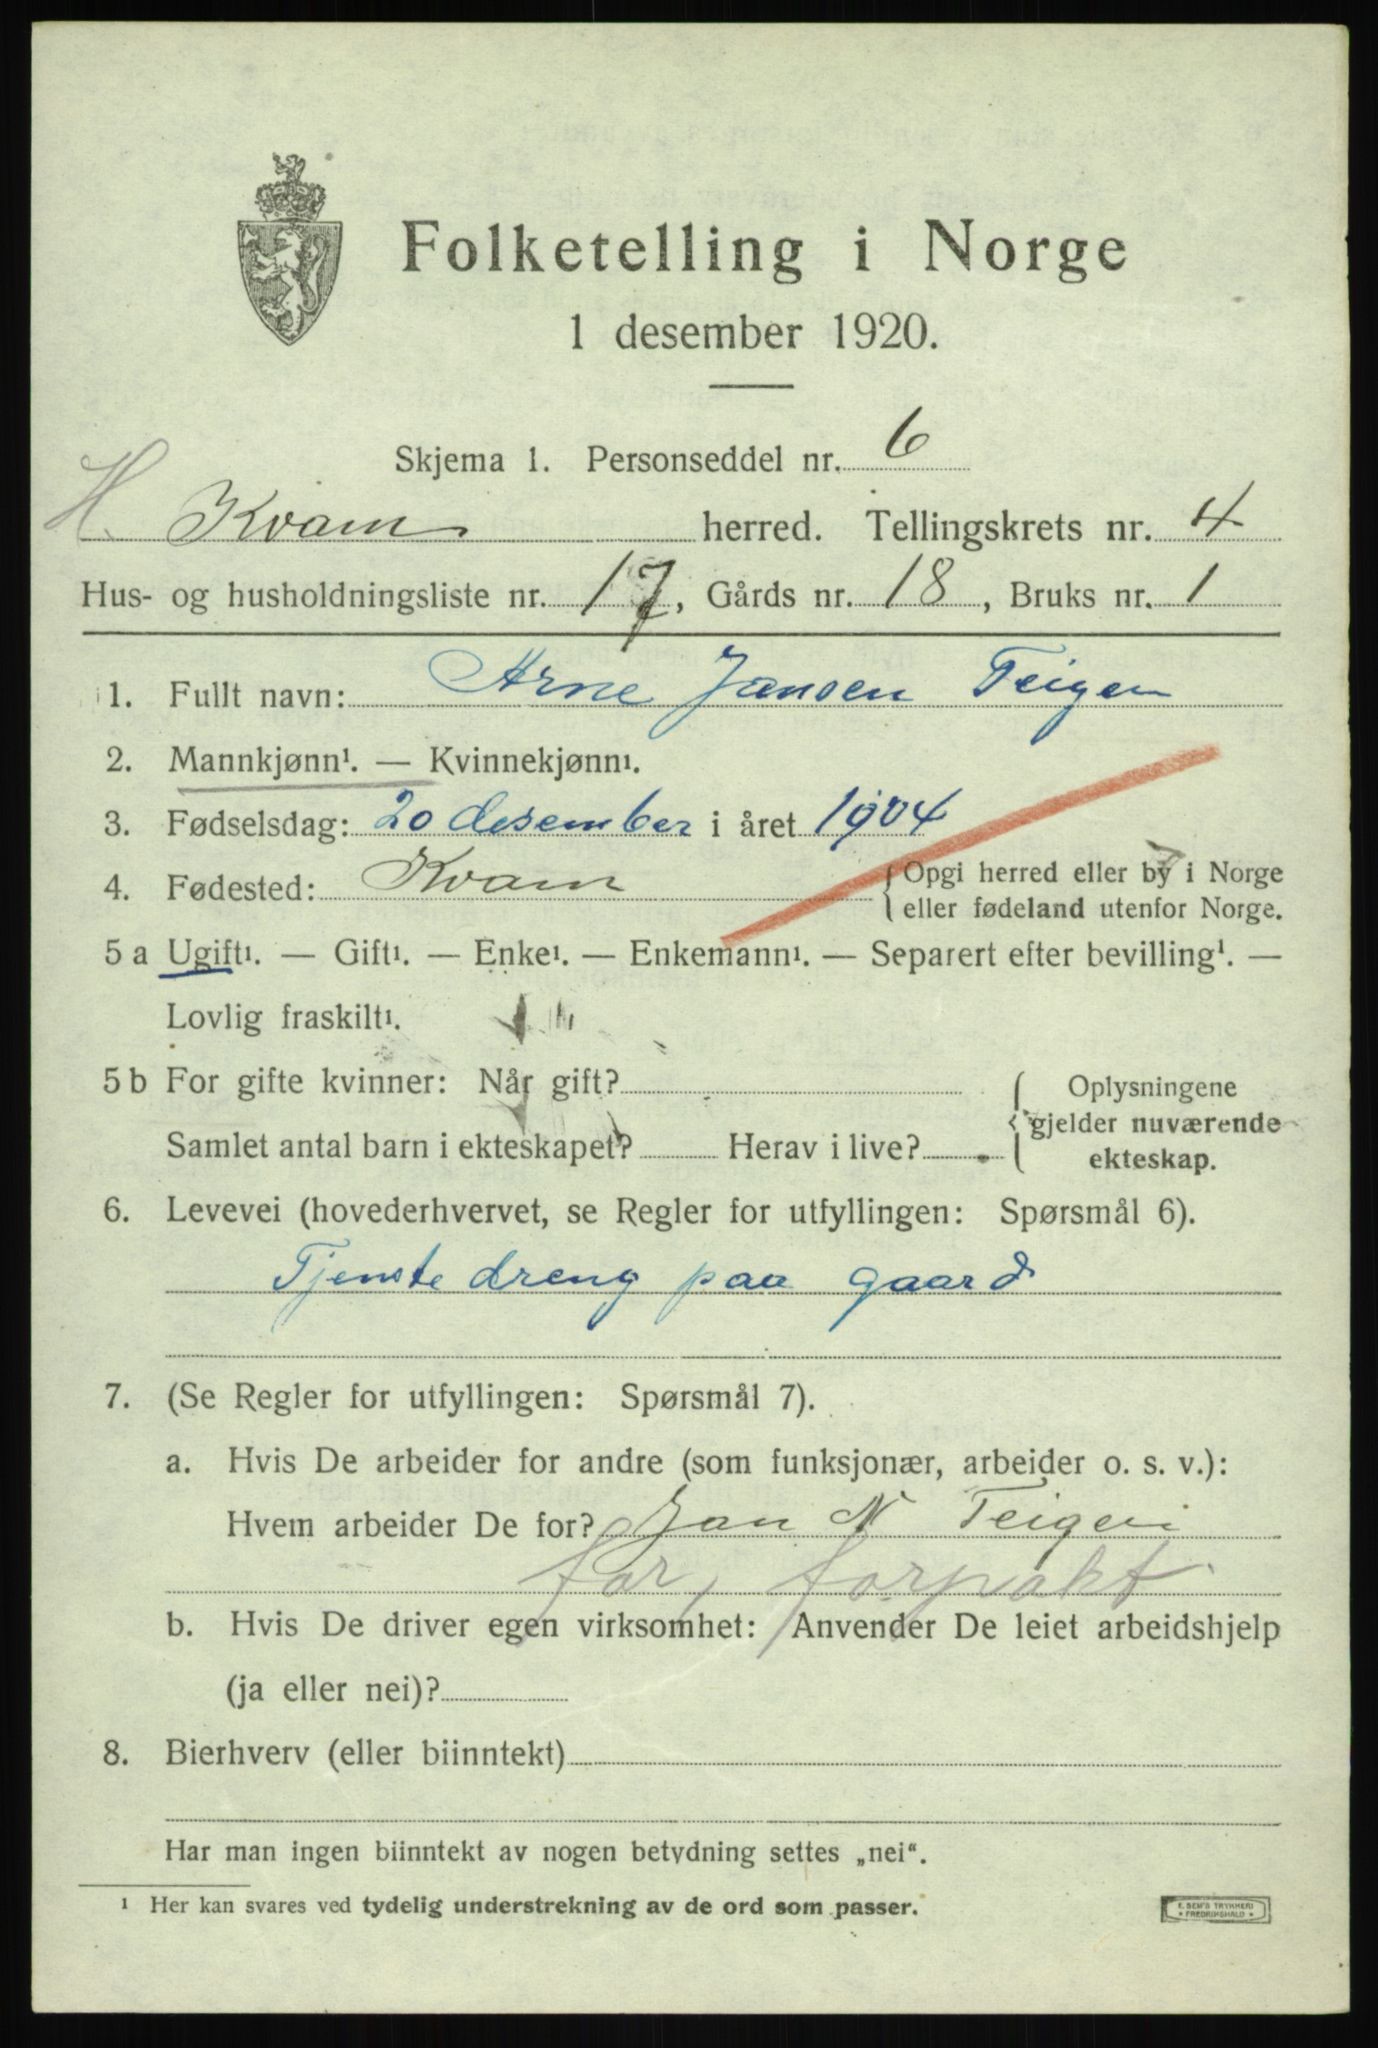 Folketelling i Norge
1 desember 1920.
Skjema 1. Personseddel nr. 6
H. Kvam herred. Tellingskrets nr. 4
Hus- og husholdningsliste nr. 17, Gårds nr. 18, Bruks nr. 1
1. Fullt navn: Arne Jansen Teigen
2. Mannkjønn¹. — Kvinnekjønn¹.
3. Fødselsdag: 20 desember i året 1904
4. Fødested: Kvam { Opgi herred eller by i Norge
eller fødeland utenfor Norge.
5 a Ugift¹. — Gift¹. — Enke¹. — Enkemann¹. — Separert efter bevilling¹. —
Lovlig fraskilt¹.
5 b For gifte kvinner: Når gift? { Oplysningene
gjelder nuværende
Samlet antal barn i ekteskapet? Herav i live? ekteskap.
6. Levevei (hovederhvervet, se Regler for utfyllingen: Spørsmål 6).
Tjenstedreng paa gaard
7. (Se Regler for utfyllingen: Spørsmål 7).
a. Hvis De arbeider for andre (som funksjonær, arbeider o. s. v.):
Hvem arbeider De for? Jan N Teigen
far, forpakt
b. Hvis De driver egen virksomhet: Anvender De leiet arbeidshjelp
(ja eller nei)?
8. Bierhverv (eller biinntekt)
Har man ingen biinntekt av nogen betydning settes „nei“.
¹ Her kan svares ved tydelig understrekning av de ord som passer.
E. SEM'S TRYKKERI
* FREDRIKSHALD *